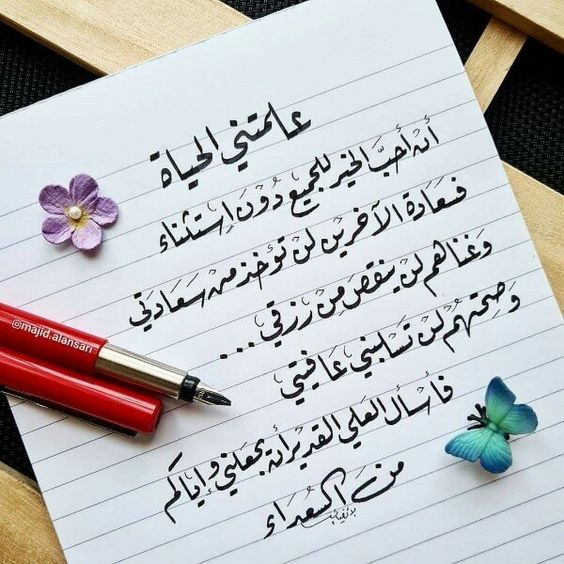 علمتني الحياة
أن أحبَّ الخير للجميع دُونَ اِستثناء
فسعادة الآخرين لن تؤخذ من سعادتي
وغناهم لن ينقص مِن رزقي...
وَصحتهُم لن تسلبني عافيتي
فأسأل العلي القدير أن يجعلني وإياكم
من السُعداء
@majid.alansari